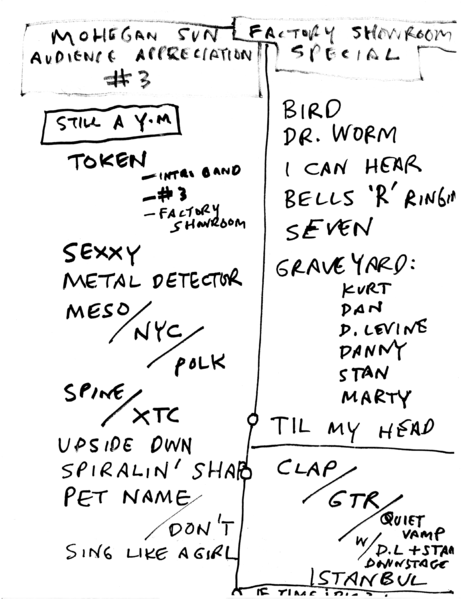 MOHEGAN SUN
AUDIENCE APPRECIATION
#3
STILL A Y.M
TOKEN
- INTRO BAND
- #3
- FACTORY
SHOWROOM
SEXXY
METAL DETECTOR
MESO/
NYC/
POLK
SPINE/
XTC
UPSIDE DWN
SPIRALIN' SHAP
PET NAME
/DON'T
SING LIKE A GIRL
FACTORY SHOWROOM
SPECIAL
BIRD
DR. WORM
I CAN HEAR
BELLS 'R' RINGIN
SEVEN
GRAVEYARD:
KURT
DAN
D. LEVINE
DANNY
STAN
MARTY
TIL MY HEAD
CLAP/
GTR/
QUIET
VAMP
W/ D.L + STAN
DOWNSTAGE
ISTANBUL
IF TIME